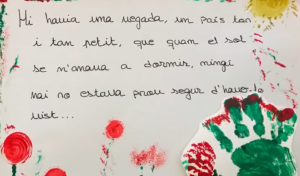 Hi havia una vegada, un país tan
i tan petit, que quan el sol
se n'anava a dormir, ningú
mai no estava prou segur d'haver-lo
vist...